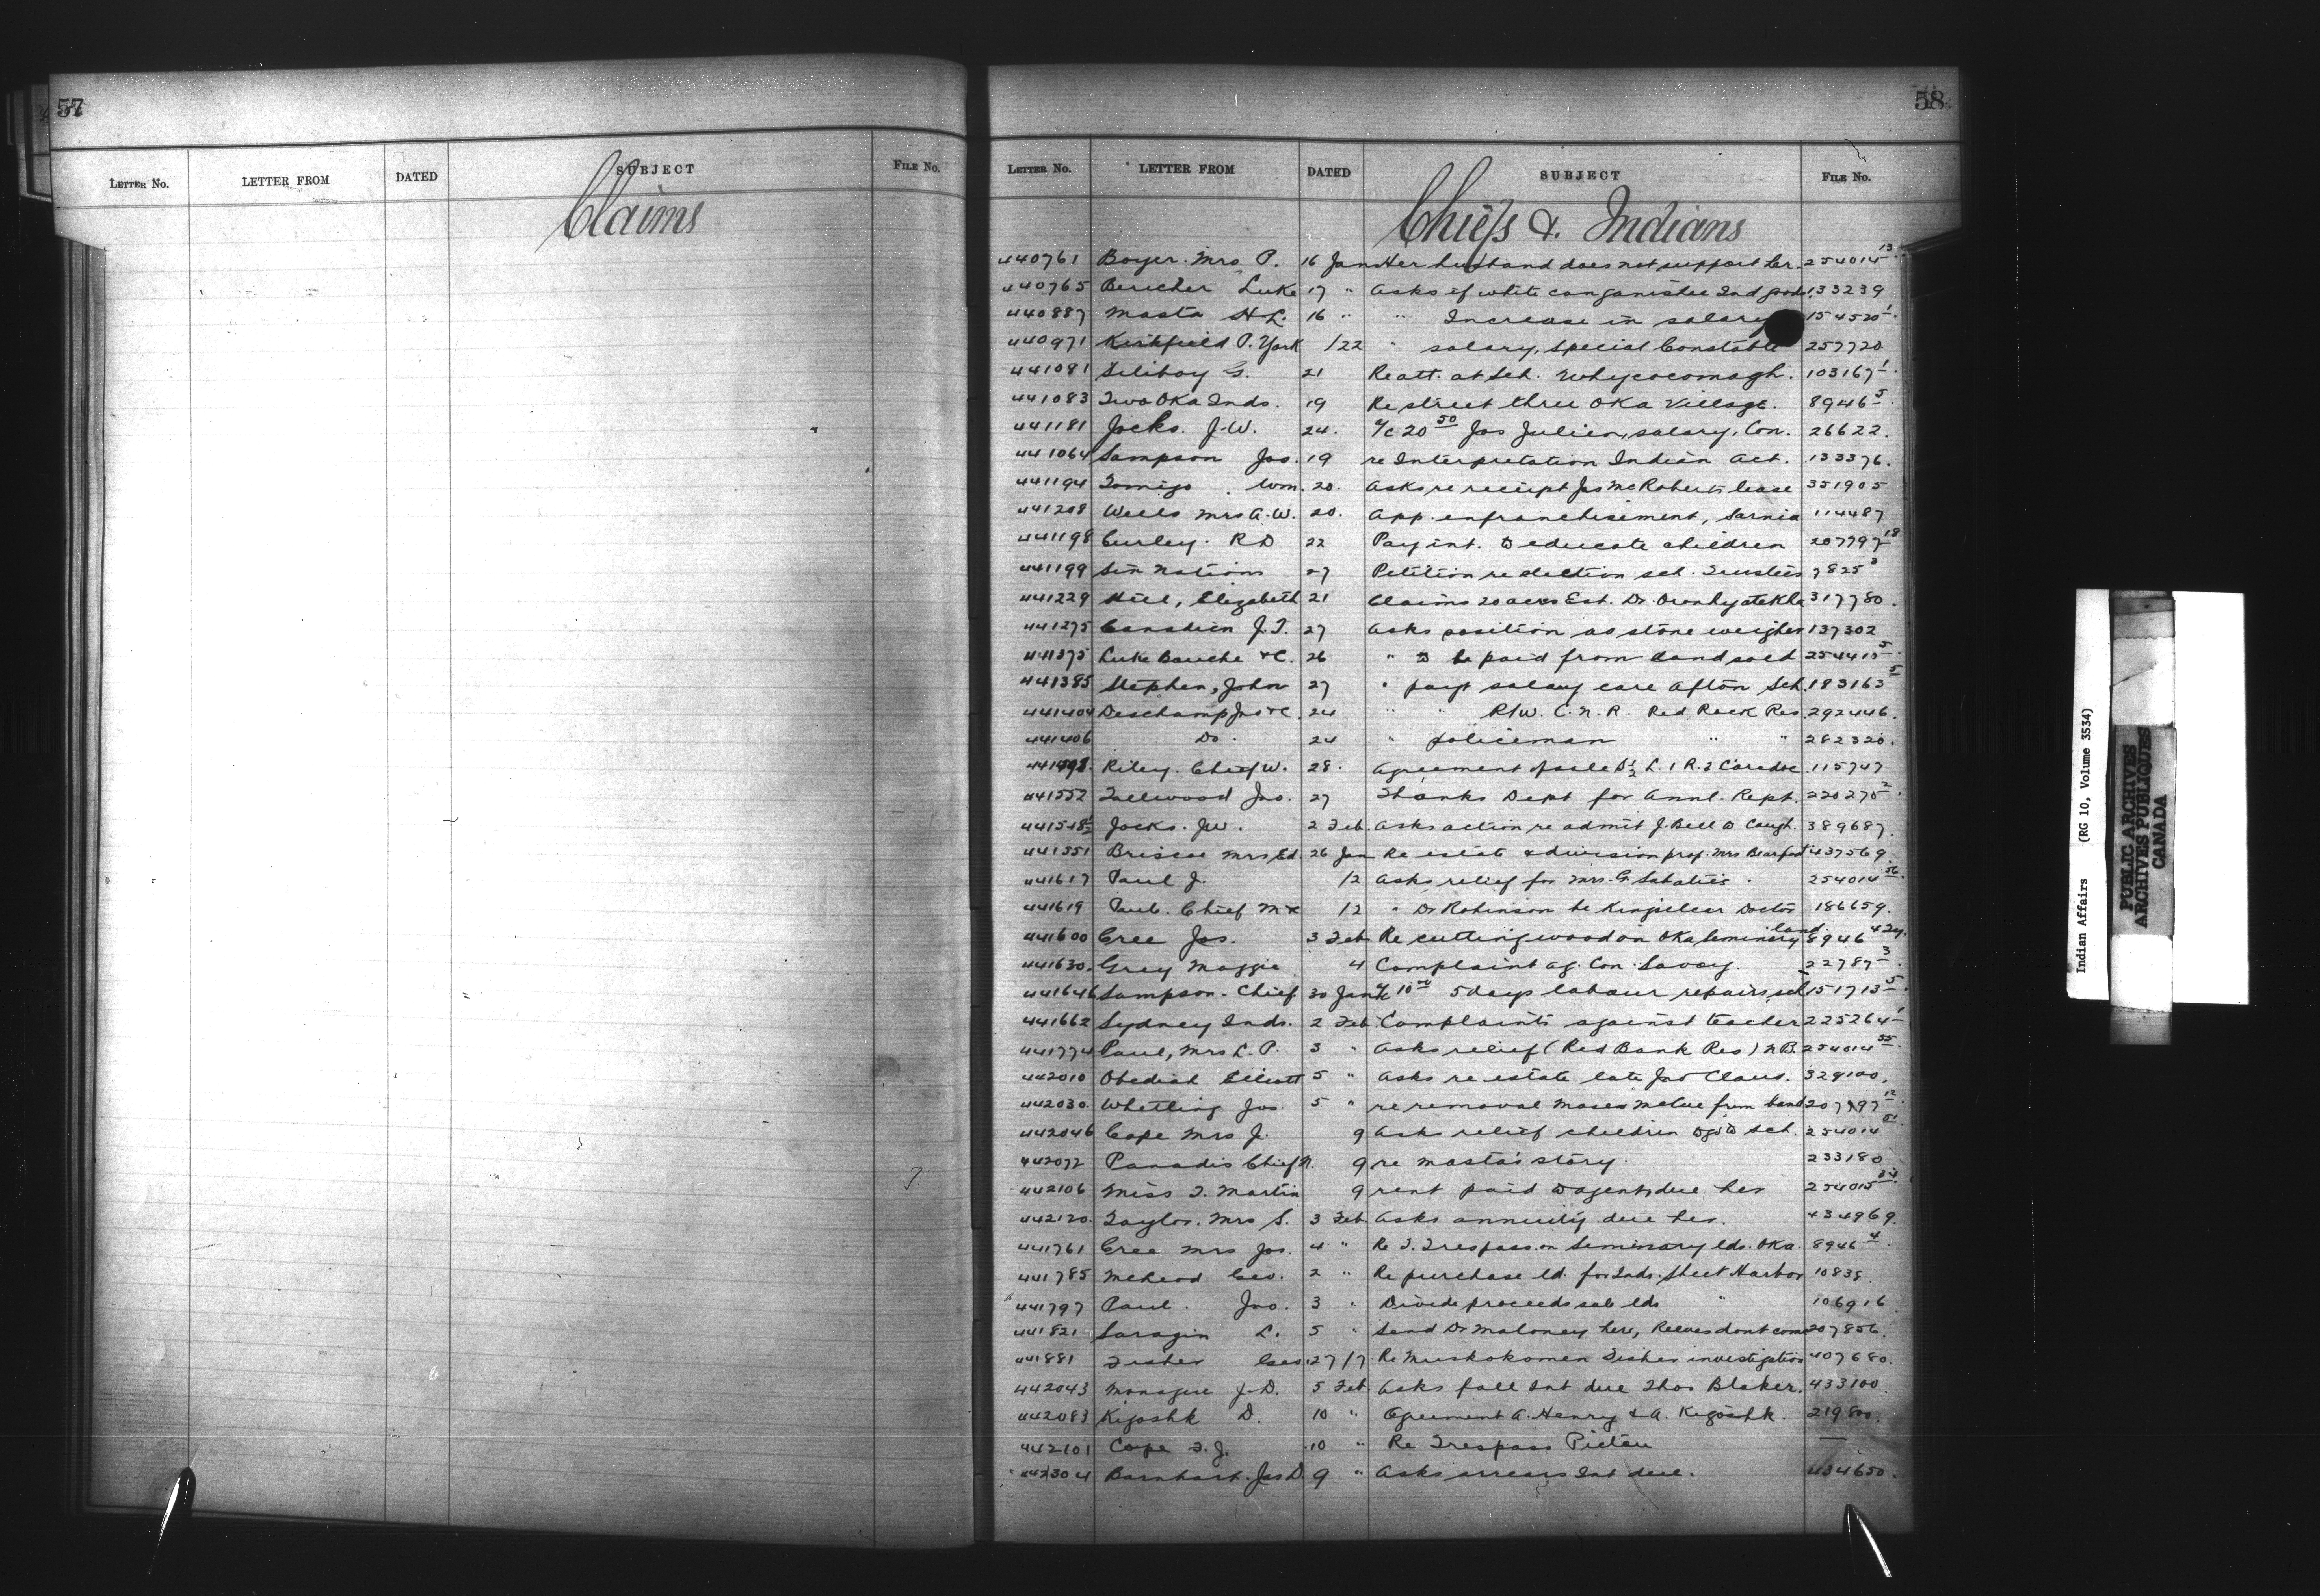 57
LETTER NO. LETTER FROM DATED SUBJECT FILE NO.
Claims
58
LETTER NO. LETTER FROM DATED SUBJECT FILE NO.
Chiefs & Indians
440761 Boyer Mrs P. 16 Jan Her husband does not support her. 254015 13
440765 Luke 17 " Asks if white can 133239
440887 Masta H L. 16 " " Increase in salary 154520 1
440971 Kirkfield P. York 1/22 " salary, Special Constable 257720
441081 G. 21 Re att. at Sch. Whycocomagh. 103167 1
441083 Two Oka Inds. 19 Re street three Oka Village. 8946 5
441181 Jocks. J.W. 24. a/c 20 50 Jos Julien, salary, Con. 26622.
441064 Sampson Jos. 19 re Interpretation Indian Act. 133376.
441194 Wm. 20. Asks re receipt Jas McRoberts lease 351905
441208 Wells Mrs A.W. 20. App. enfranchisement, Sarnia 114487
441198 Curley. R D 22 Pay int. to educate children 207797 18
441199 Six Nations 27 Petition re election sch. Trustees 7825 3
441229 Hill, Elizabeth 21 Claims 20 acres Est. Dr. Oronhyatekha 317780.
441275 Canadien J.T. 27 Asks position as stone weigher 137302
441375 Luke Bouche &C. 26 " to be paid from land sold 254415 5
441385 Stephen, John 27 " payt salary care Afton Sch. 183163 5
441404 Deschamp Jno &c. 24 " " R/W. C.N.R. Red Rock Res. 292446.
441406 Do. 24 " policeman " " 282320.
Riley. Chief W. 28. Agreement of sale L. 1 R. 2 Caradoc. 115747
441552 Tallwood Jno. 27 Thanks Dept for Annl. Rept. 220275 2
Jocks. J W. 2 Feb. Asks action re admit J. Bell to Caugh. 389687.
441551 Briscoe Mrs Ed. 26 Jan Re estate & division prop. Mrs Bearfoot 437569.
441617 Paul J. /2 Asks relief for Mrs. G Sabaties. 254014 56
441619 Paul. Chief M &c /2 " Dr Robinson be Kingsclear Doctor 186659.
441600 Cree Jos. 3 Feb Re cutting wood on Oka Seminary land. 8946 4
441630. Grey Maggie 4 Complaint ag. Con. Savoy. 22787 3
441646 Sampson. Chief 30 Jan a/c 10 00 5 days labour repairs sch 151713 5
441662 Sydney Inds. 2 Feb. Complaints against teacher 225264 1
441774 Paul, Mrs L. P. 3 " Asks relief (Red Bank Res) N.B. 254014 55
442010 Obediah Elliott 5 " Asks re estate late Jno Claus. 329100.
442030. Whetling Jos 5 " re removal Moses McCue from band 207797 12
442046 Cope Mrs J. 9 Ask relief children to go to sch. 254014 51
442072 Panadis Chief N. 9 re Masta's story. 233180
442106 Miss T. Martin 9 rent paid to agent, due her 254015 34
442120. Taylor. Mrs S. 3 Feb. Asks annuity due her. 434969.
441761 Cree Mrs Jos. 4 " Re T. Trespass on Seminary lds. Oka. 8946 4
441785 McLeod Geo. 2 " Re purchase ld. for Inds. Sheet Harbor 10838.
441797 Paul. Jno. 3 " Divide proceeds sale lds " 106916
441821 L. 5 " Send Dr Maloney here, Reeves dont come 207856.
441881 Fisher Geo. 27/7 Re Muskokomon Fisher investigation 407680.
442043 Monague J.D. 5 Feb. Asks fall Int due Thos Blaker. 433100
442083 Kigoshk D. 10 " Agreement A. Henry & A. Kigoshk. 219800.
442101 Cope T.J. 10 " Re Trespass Pictou —
442304 Barnhart. Jas D. 9 " Asks arrears Int due. 434650.
Indian Affairs (RG 10, Volume 3534)
PUBLIC ARCHIVES
ARCHIVES PUBLIQUES
CANADA